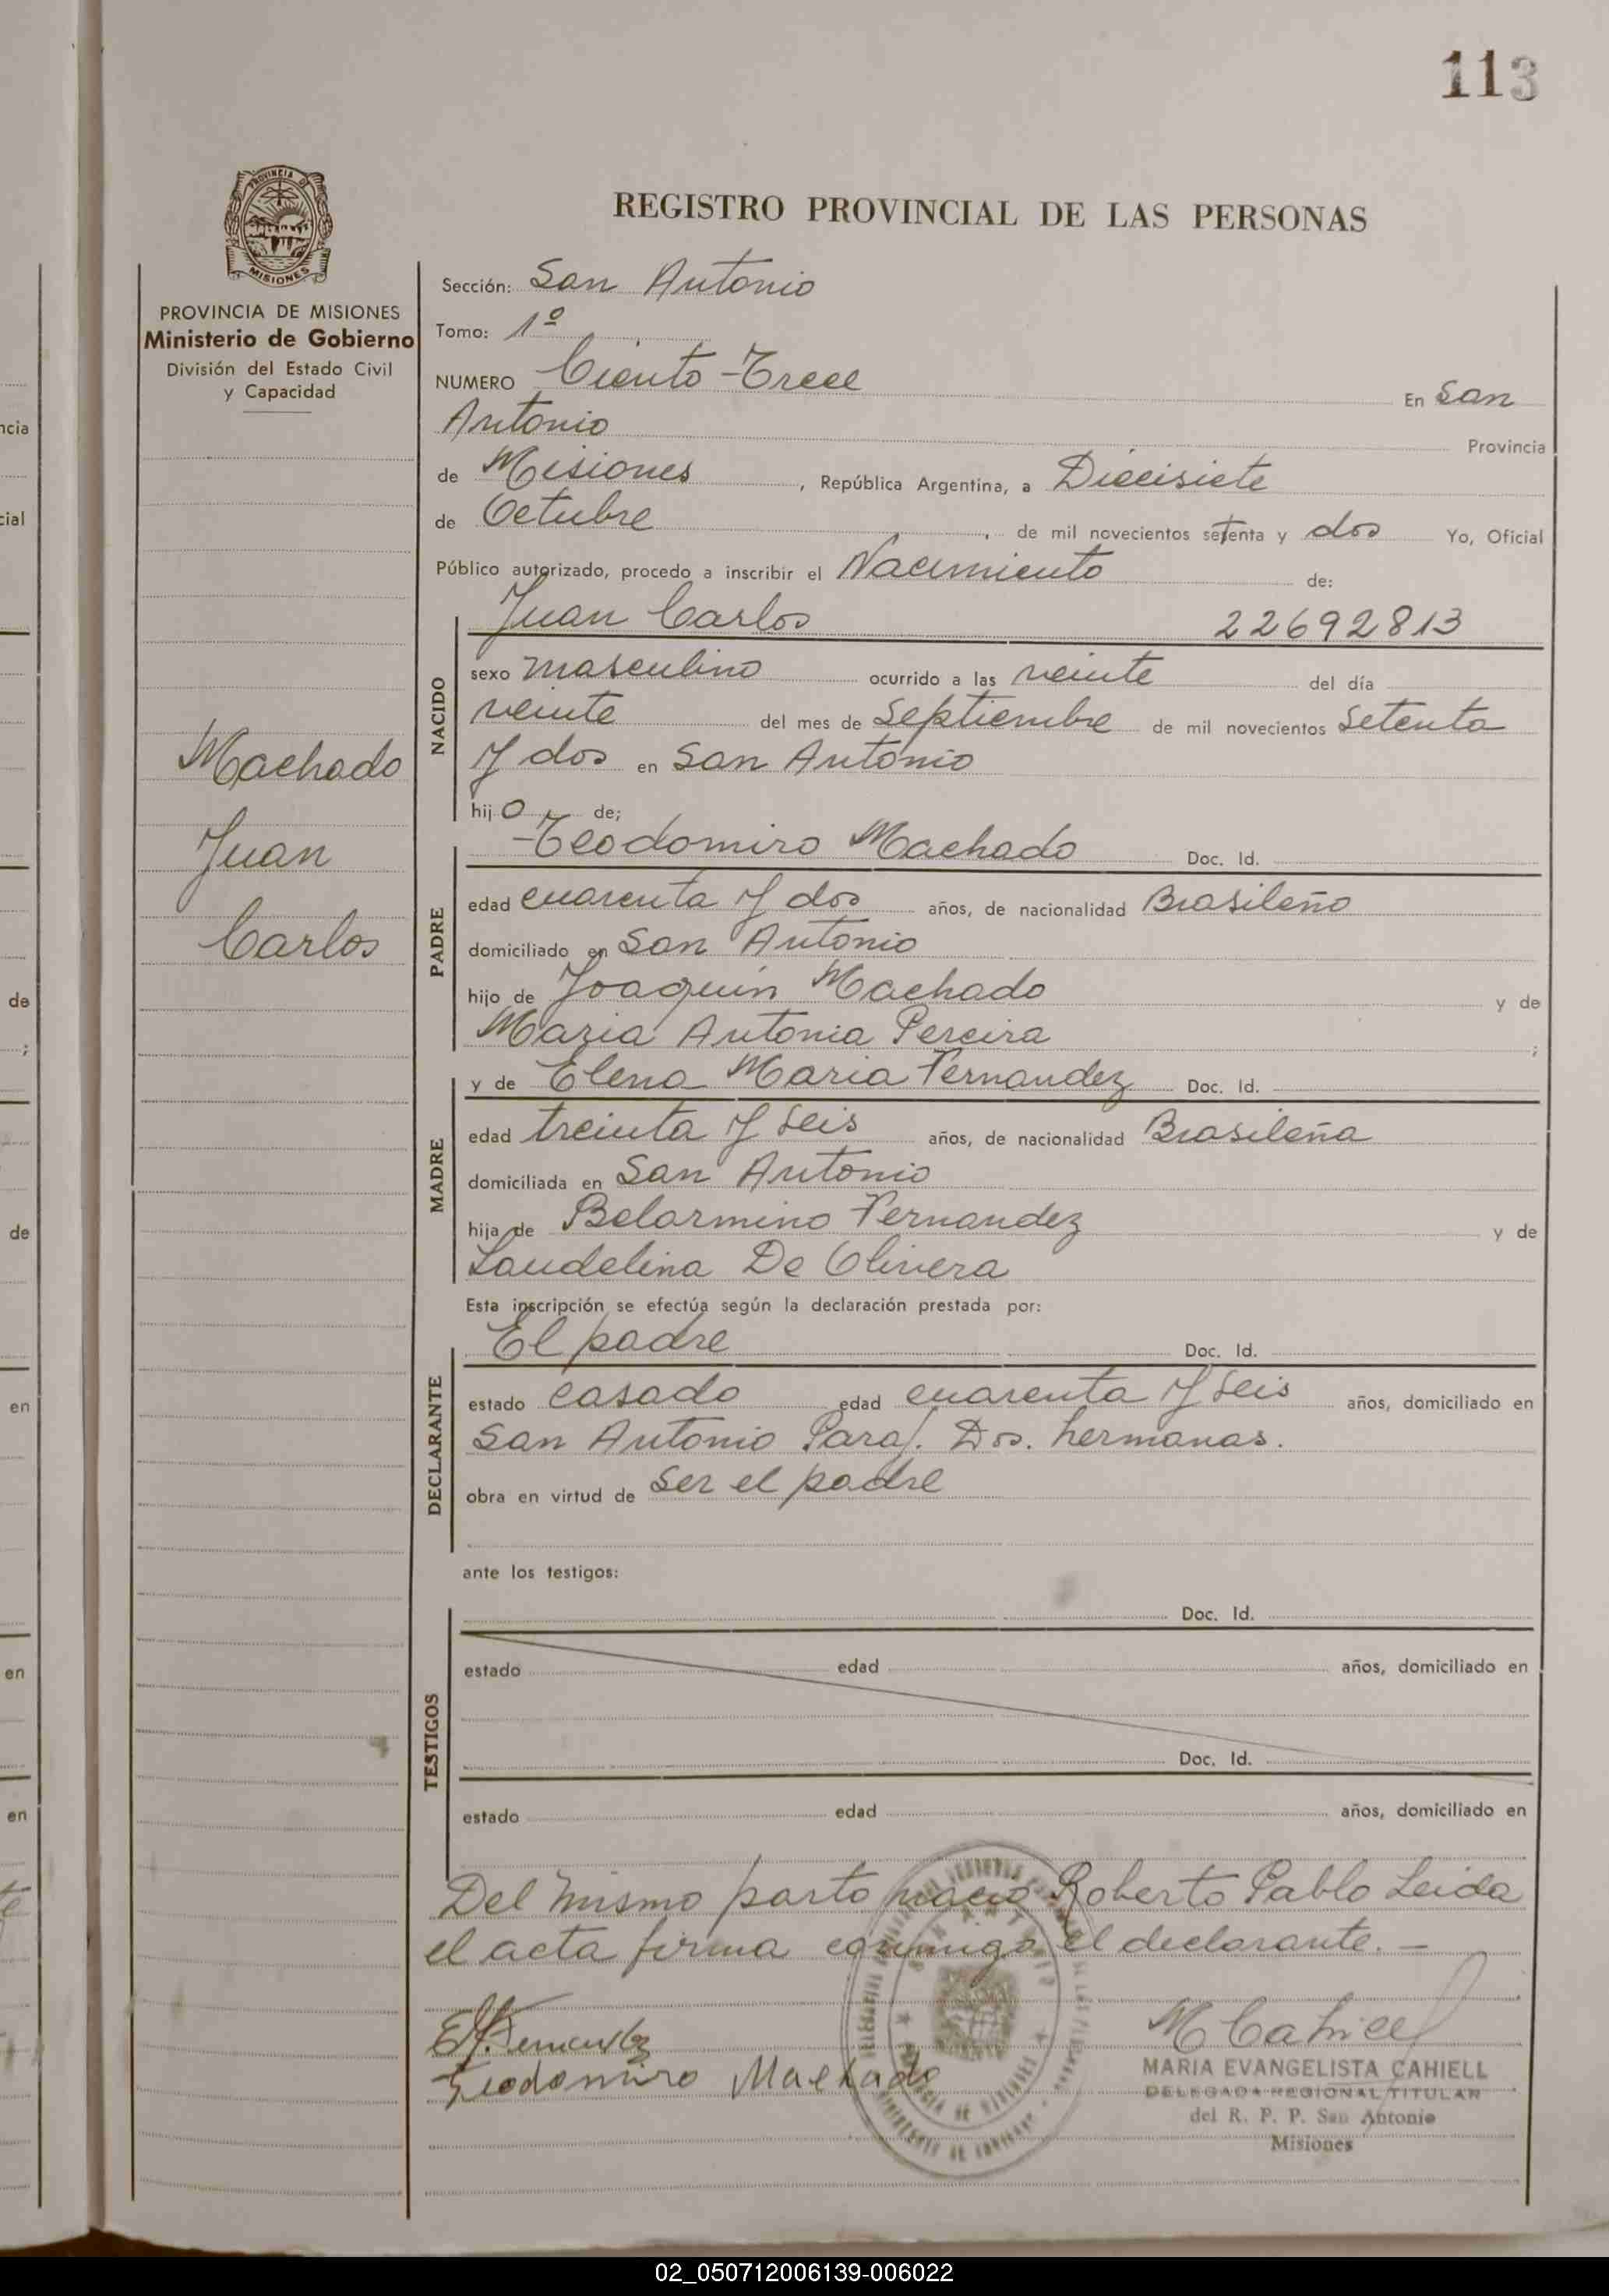 113
PROVINCIA DE MISIONES
MISIONES
PROVINCIA DE MISIONES
Ministerio de Gobierno
División del Estado Civil
y Capacidad
Machado
Juan
Carlos
REGISTRO PROVINCIAL DE LAS PERSONAS
Sección: San Antonio
Tomo: 1º
NUMERO Ciento Trece En San
Antonio Provincia
de Misiones, República Argentina, a Diecisiete
de Octubre, de mil novecientos setenta y dos Yo, Oficial
Público autorizado, procedo a inscribir el Nacimiento de:
NACIDO
Juan Carlos 22692813
sexo masculino ocurrido a las veinte del día
veinte del mes de Septiembre de mil novecientos Setenta
y dos en San Antonio
hijo de;
PADRE
Teodomiro Machado Doc. Id.
edad cuarenta y dos años, de nacionalidad Brasileño
domiciliado en San Antonio
hijo de Joaquin Machado y de
Maria Antonia Pereira ;
MADRE
y de Elena Maria Fernandez Doc. Id.
edad treinta y seis años, de nacionalidad Brasileña
domiciliada en San Antonio
hija de Belarmino Fernandez y de
Laudelina De Olivera
Esta inscripción se efectúa según la declaración prestada por:
DECLARANTE
El padre Doc. Id.
estado casado edad cuarenta y seis años, domiciliado en
San Antonio Paraj. Dos. hermanas.
obra en virtud de ser el padre
ante los testigos:
TESTIGOS
Doc. Id.
estado edad años, domiciliado en
Doc. Id.
estado edad años, domiciliado en
Del mismo parto nacio Roberto Pablo Leida
el acta firma conmigo el declarante. —
Teodomiro Machado
M Cahiell
MARIA EVANGELISTA CAHIELL
DELEGADA REGIONAL TITULAR
del R. P. P. San Antonio
Misiones
ncia
cial
de
;
de
en
en
en
te
02_050712006139-006022